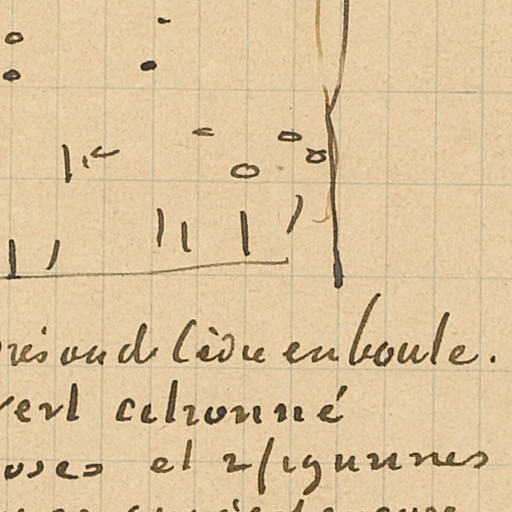 rès ou de Cèdre en boule.
vert citronné
oses et 2 figurines